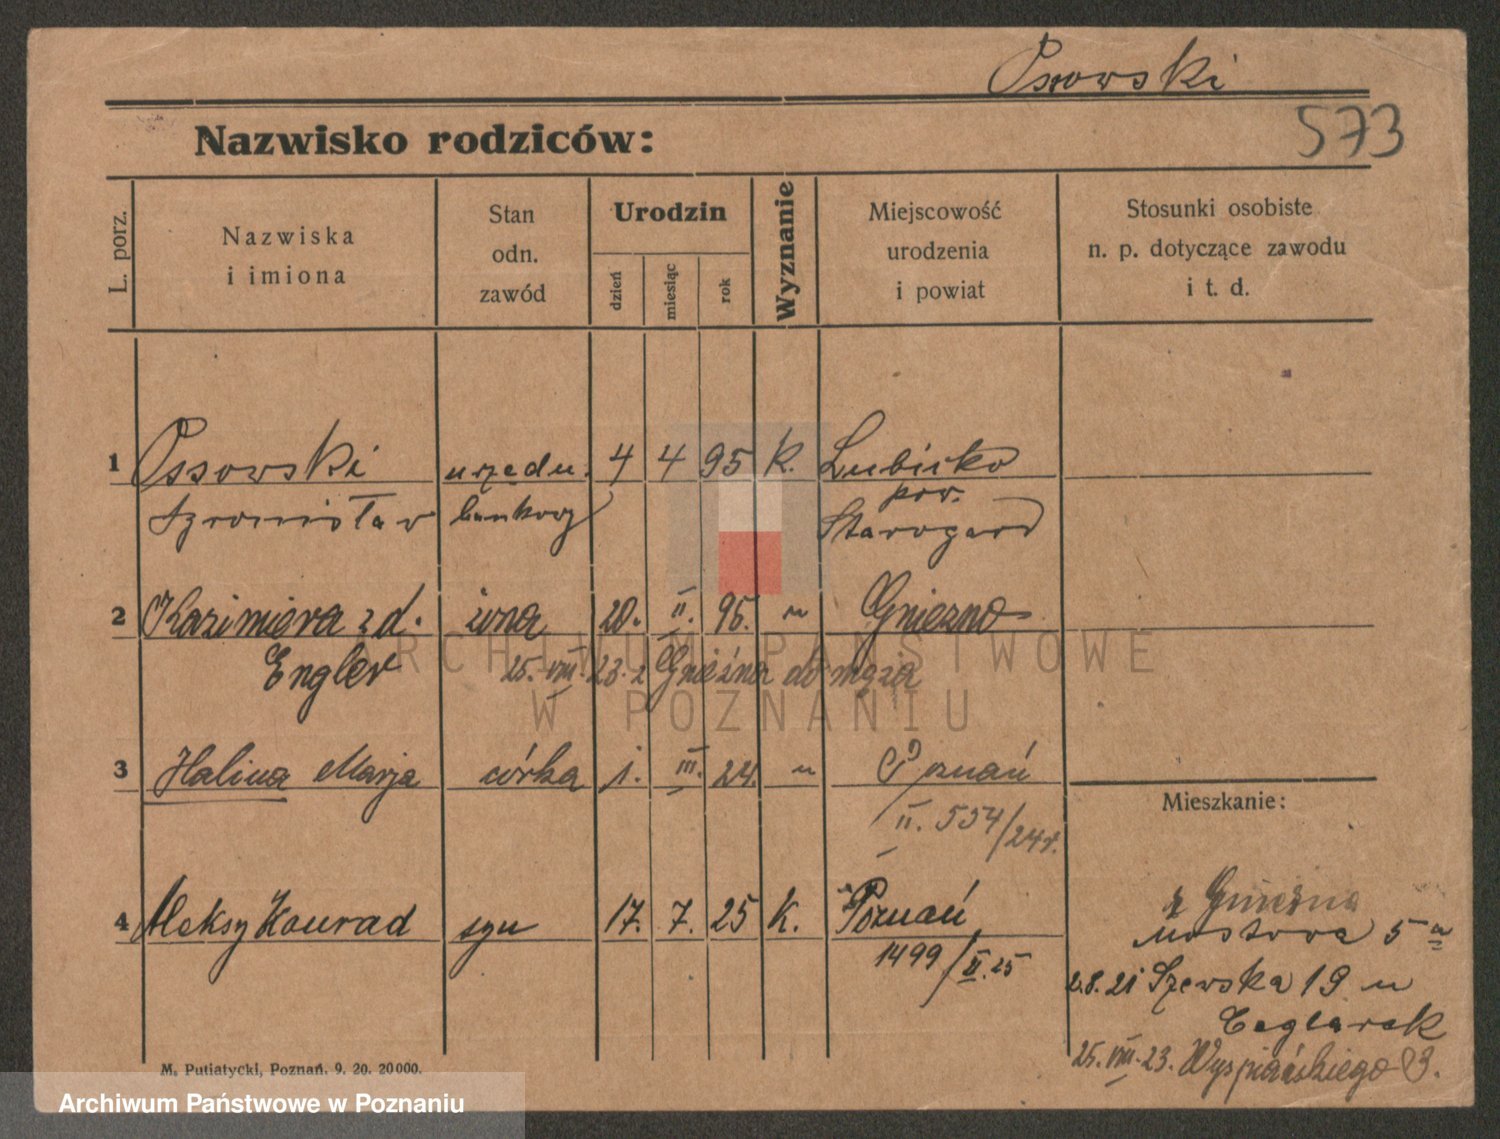 Ossowski
573
Nazwisko rodziców:
L. porz.
Nazwiska
i imiona
Stan
odn.
zawód
Urodzin
dzień
miesiąc
rok
Wyznanie
Miejscowość
urodzenia
i powiat
Stosunki osobiste
n. p. dotyczące zawodu
i t. d.
1 Ossowski urzędn. 4 4 95 K. Lubicko
pow.
bankowy Starogard
2 Kazimiera z d. żona 20. II. 96. " Gniezno
Engler 25. VIII. 23. z Gniezna do męża
3 Halina Marja córka 1. III. 24. " Poznań
II. 554/24r.
Mieszkanie:
4 Aleksy Konrad syn 17. 7. 25 K. Poznań
1499/II.25
z Gniezna
Mostowa 5a
2.8.21 Szewska 19 u
Ceglarek
25. VIII. 23. Wyspiańskiego 3.
M. Putiatycki, Poznań. 9. 20. 20000.
ARCHIWUM PAŃSTWOWE
W POZNANIU
Archiwum Państwowe w Poznaniu